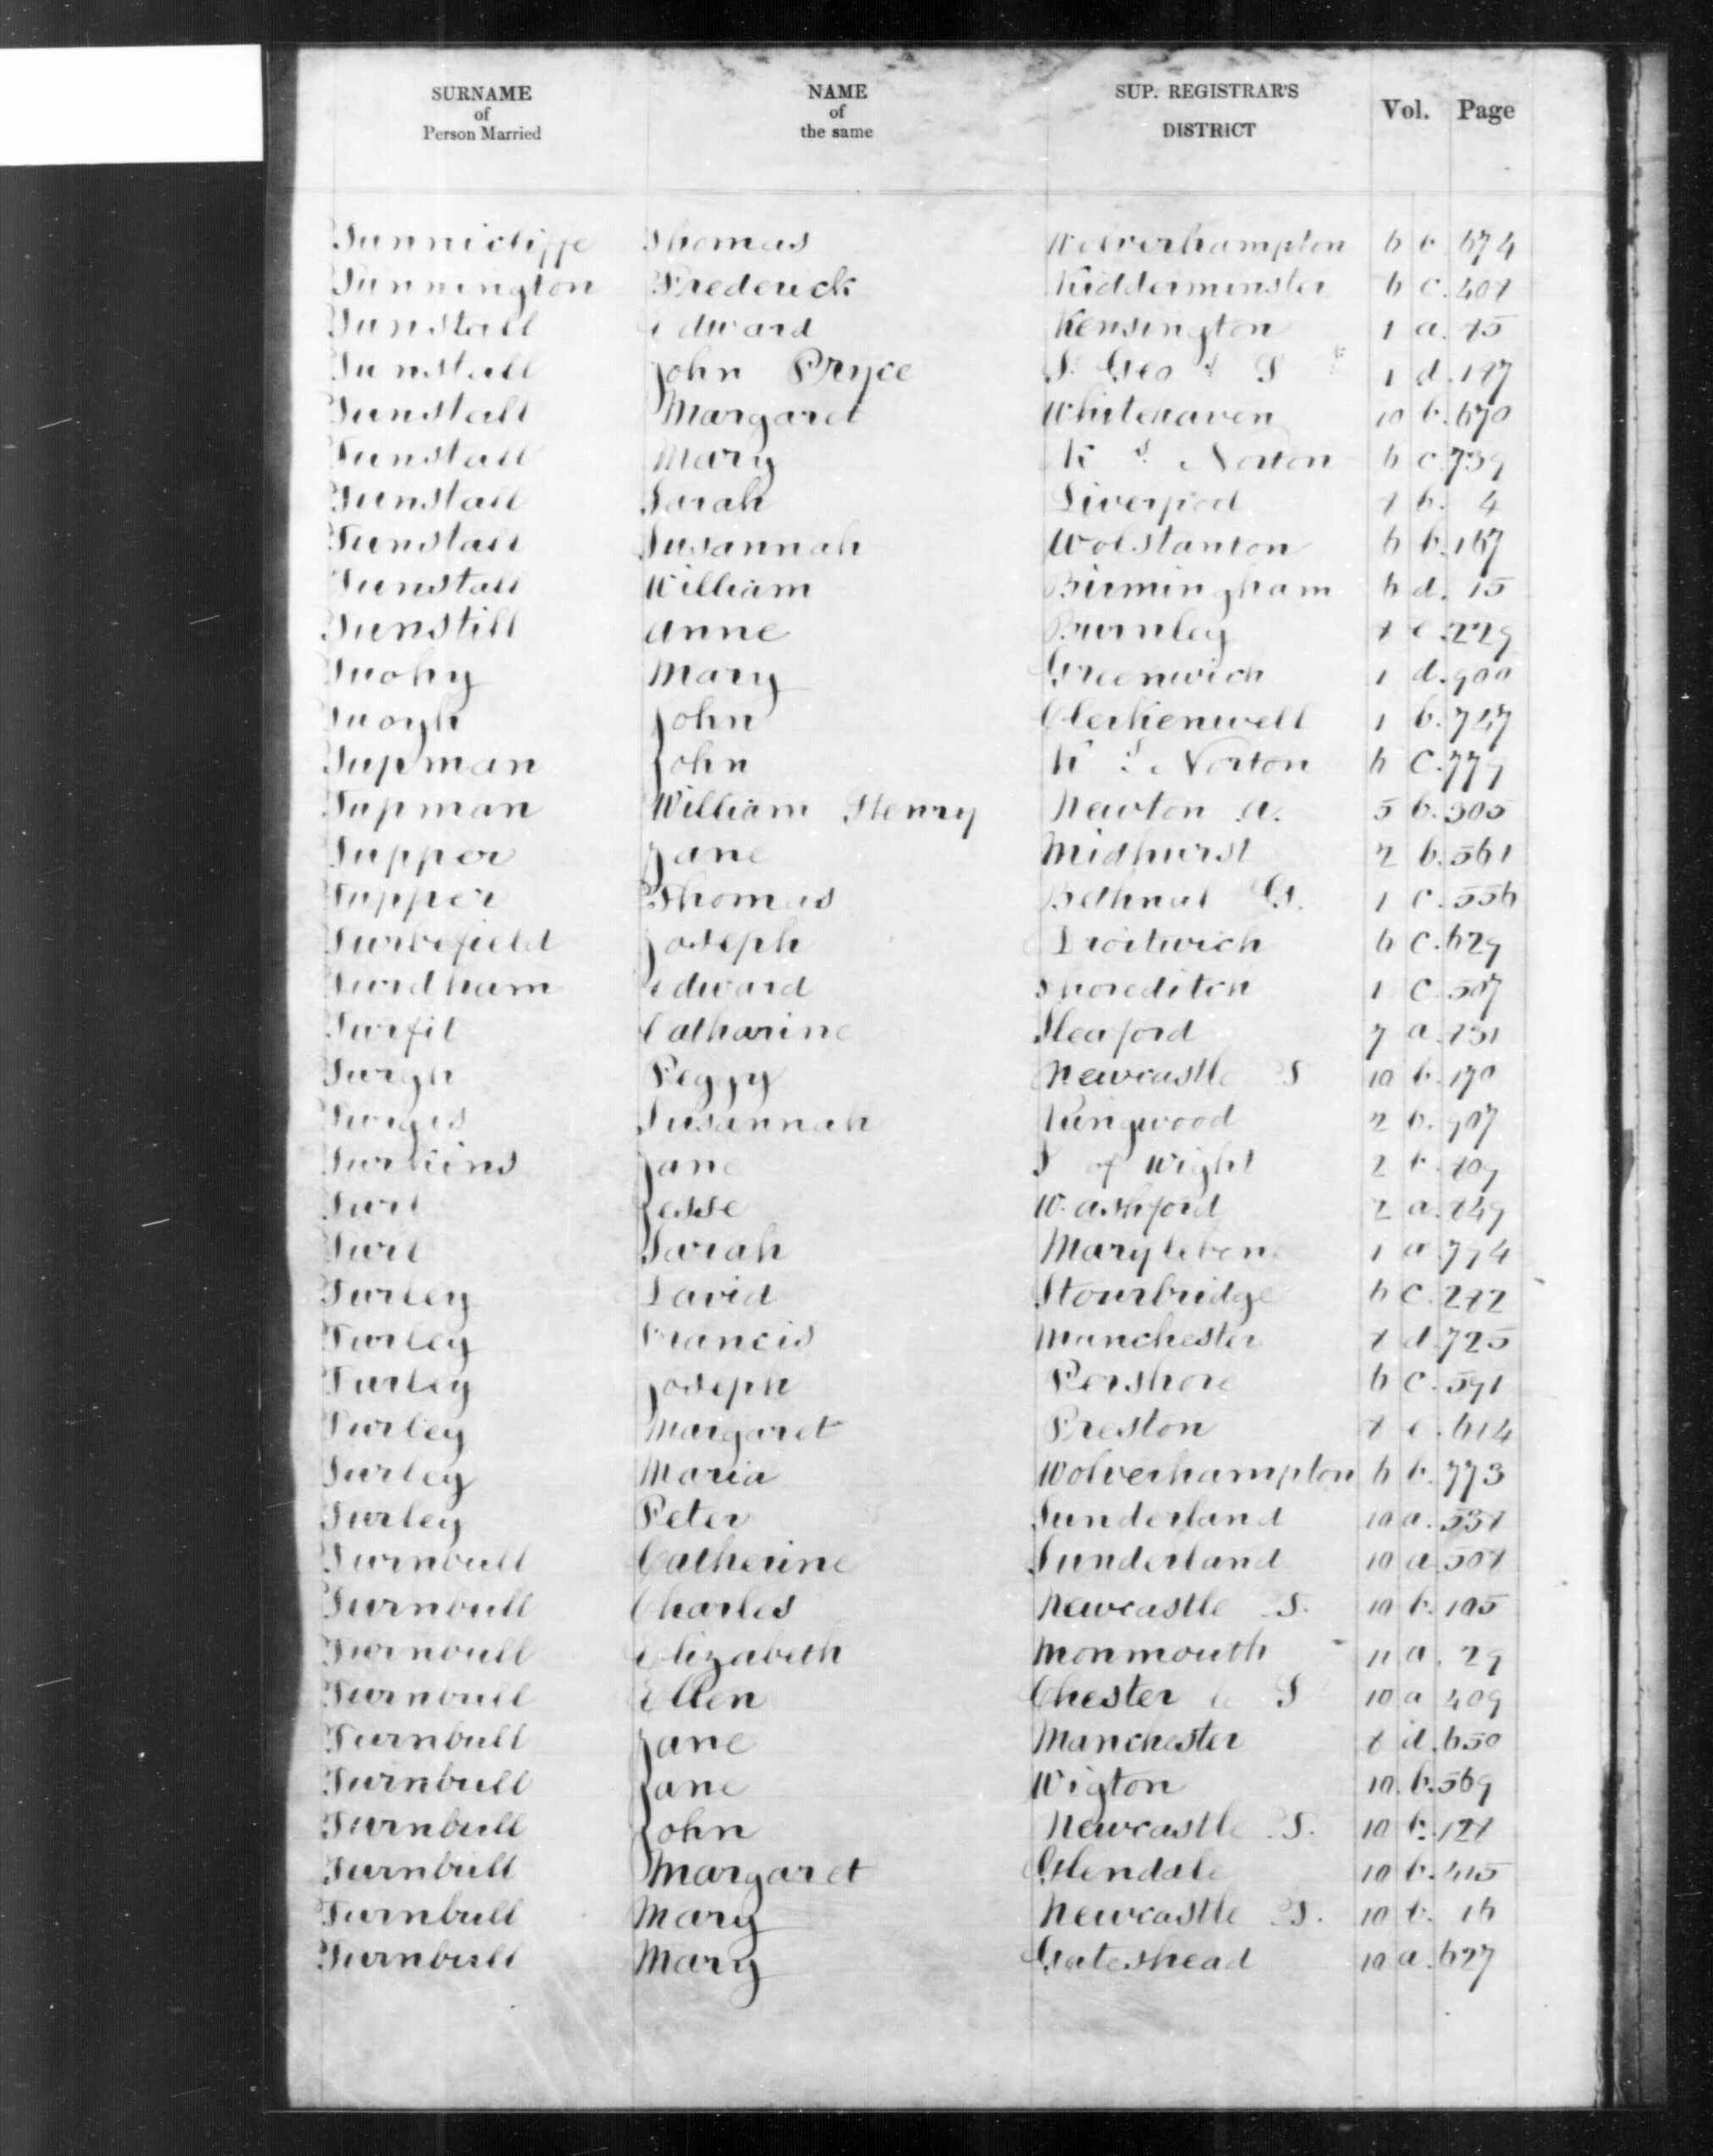 SURNAME of Person Married NAME of the same SUP. REGISTRAR'S DISTRICT Vol. Page
Tunnicliffe Thomas Wolverhampton 6 b. 674
Tunnington Frederick Kidderminster 6 c. 401
Tunstall Edward Kensington 1 a. 15
Tunstall John Pryce S. Geo S 1 d. 187
Tunstall Margaret Whitehaven 10 b. 670
Tunstall Mary Ks Norton 6 c. 739
Tunstall Sarah Liverpool 8 b. 4
Tunstall Susannah Wolstanton 6 b. 167
Tunstall William Birmingham 6 d. 15
Tunstill Anne Burnley 8 e. 229
Tuohy Mary Greenwich 1 d. 900
Tuoyh John Clerkenwell 1 b. 747
Tupman John Ks Norton 6 c. 779
Tupman William Henry Newton A. 5 b. 305
Tupper Jane Midhurst 2 b. 561
Tupper Thomas Bethnal G. 1 c. 556
Turbefield Joseph Droitwich 6 c. 629
Turdham Edward Shoreditch 1 c. 507
Turfit Catharine Sleaford 7 a. 831
Turgh Peggy Newcastle T 10 b. 170
Turgis Susannah Ringwood 2 b. 907
Turkins Jane I of Wight 2 b. 809
Turl Jesse W. Ashford 2 a. 849
Turl Sarah Marylebone 1 a. 794
Turley David Stourbridge 6 c. 282
Turley Francis Manchester 8 d. 725
Turley Joseph Pershore 6 c. 591
Turley Margaret Preston 8 e. 614
Turley Maria Wolverhampton 6 b. 773
Turley Peter Sunderland 10 a. 538
Turnbull Catherine Sunderland 10 a. 508
Turnbull Charles Newcastle T. 10 b. 105
Turnbull Elizabeth Monmouth 11 a. 29
Turnbull Ellen Chester le S 10 a 409
Turnbull Jane Manchester 8 d. 650
Turnbull Jane Wigton 10. b. 569
Turnbull John Newcastle T. 10 b. 128
Turnbull Margaret Glendale 10 b. 415
Turnbull Mary Newcastle T. 10 b. 16
Turnbull Mary Gateshead 10 a. 627